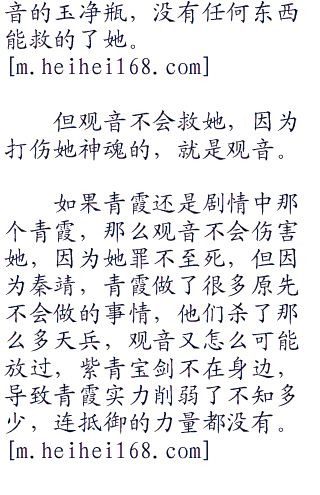 音的玉净瓶，没有任何东西
能救的了她。
[m.heihei168.com]
但观音不会救她，因为
打伤她神魂的，就是观音。
如果青霞还是剧情中那
个青霞，那么观音不会伤害
她，因为她罪不至死，但因
为秦靖，青霞做了很多原先
不会做的事情，他们杀了那
么多天兵，观音又怎么可能
放过，紫青宝剑不在身边，
导致青霞实力削弱了不知多
少，连抵御的力量都没有。
[m.heihei168.com]